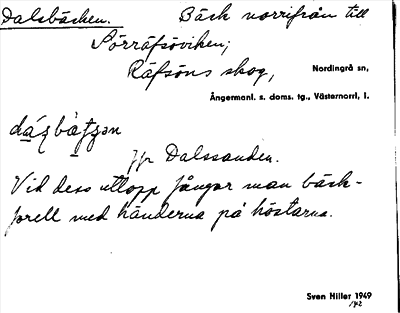 Dalsbäcken. Bäck norrifrån till
Sörräfsöviken;
Räfsöns skog, Nordingrå sn,
Ångermanl. s. doms. tg., Västernorrl. l.
Jfr Dalssanden.
Vid dess utlopp fångar man bäck-
forell med händerna på höstarna.
Sven Hiller 1949